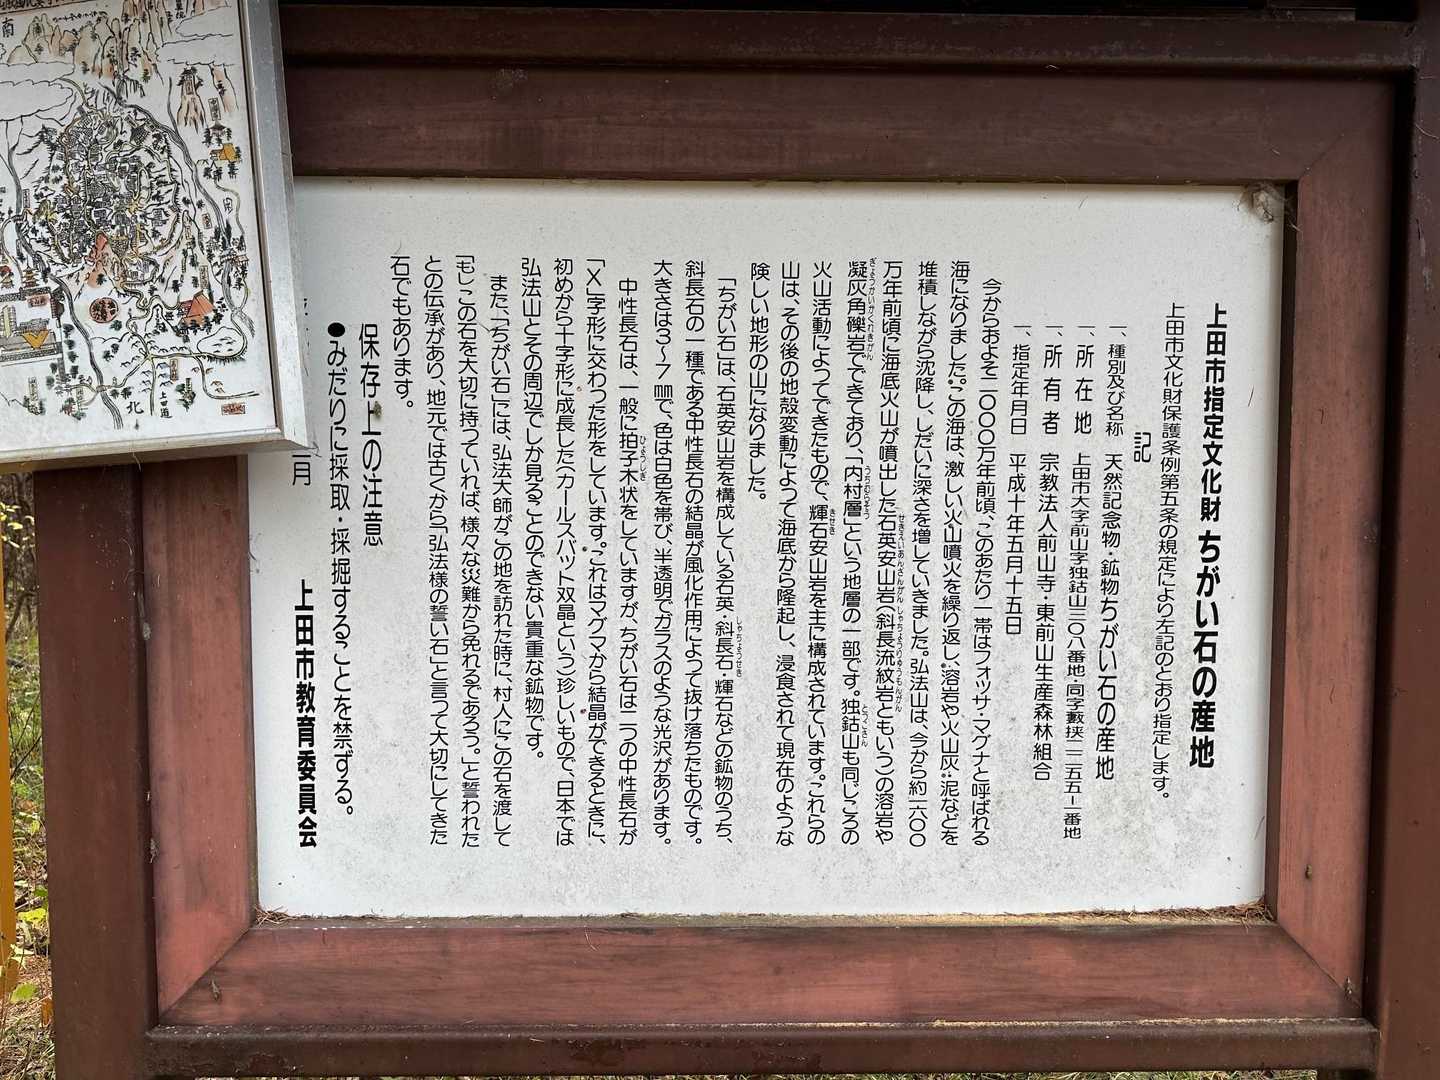 上田市指定文化財 ちがい石の産地
上田市文化財保護条例第五条の規定により左記のとおり指定します。
記
一、種別及び名称 天然記念物・鉱物ちがい石の産地
一、所在地 上田市大字前山字独鈷山三〇八番地・同字藪挟一二五五ー一番地
一、所有者 宗教法人前山寺・東前山生産森林組合
一、指定年月日 平成十年五月十五日
今からおよそ二〇〇〇万年前頃、このあたり一帯はフォッサ・マグナと呼ばれる
海になりました。この海は、激しい火山噴火を繰り返し、溶岩や火山灰・泥などを
堆積しながら沈降し、しだいに深さを増していきました。弘法山は、今から約一六〇〇
万年前頃に海底火山が噴出した石英安山岩（斜長流紋岩ともいう）の溶岩や
せきえいあんざんがん しゃちょうりゅうもんがん
凝灰角礫岩でできており、「内村層」という地層の一部です。独鈷山も同じころの
ぎょうかいかくれきがん うちむらそう とっこさん
火山活動によってできたもので、輝石安山岩を主に構成されています。これらの
きせき
山は、その後の地殻変動によって海底から隆起し、浸食されて現在のような
険しい地形の山になりました。
「ちがい石」は、石英安山岩を構成している石英・斜長石・輝石などの鉱物のうち、
しゃちょうせき
斜長石の一種である中性長石の結晶が風化作用によって抜け落ちたものです。
大きさは3〜7㎜で、色は白色を帯び、半透明でガラスのような光沢があります。
中性長石は、一般に拍子木状をしていますが、ちがい石は二つの中性長石が
ひょうしぎ
「X」字形に交わった形をしています。これはマグマから結晶ができるときに、
初めから十字形に成長した（カールスバット双晶という）珍しいもので、日本では
弘法山とその周辺でしか見ることのできない貴重な鉱物です。
また、「ちがい石」には、弘法大師がこの地を訪れた時に、村人にこの石を渡して
「もしこの石を大切に持っていれば、様々な災難から免れるであろう。」と誓われた
との伝承があり、地元では古くから「弘法様の誓い石」と言って大切にしてきた
石でもあります。
保存上の注意
●みだりに採取・採掘することを禁ずる。
月
上田市教育委員会
南
北
上田道